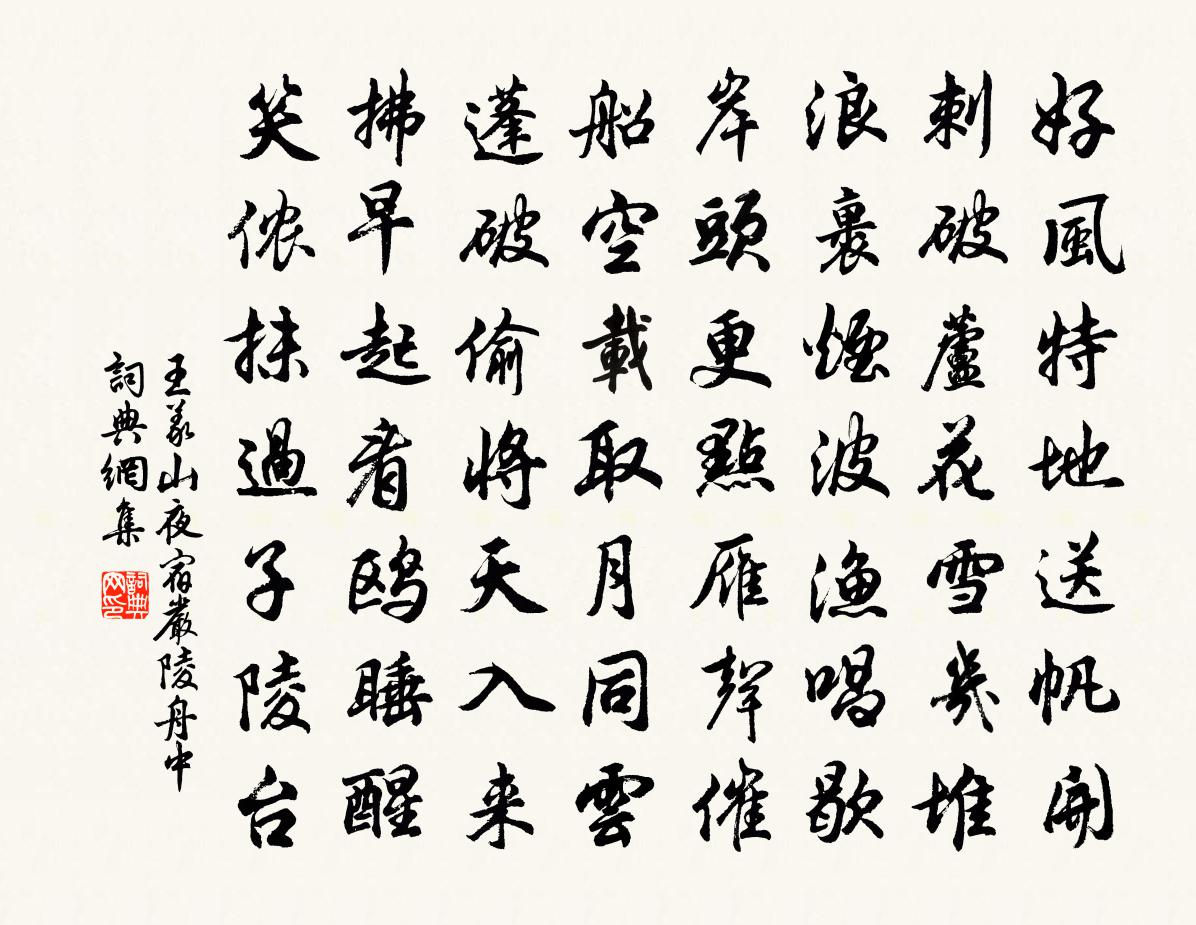 好風特地送帆開
刺破蘆花雪幾堆
浪裹煙波漁唱歇
岸頭更點雁聲催
船空載取月同雲
蓬破偷將天入来
拂早起看鸥睡醒
笑侬抹過子陵台
王義山夜宿嚴陵舟中
詞典網集
詞典網印